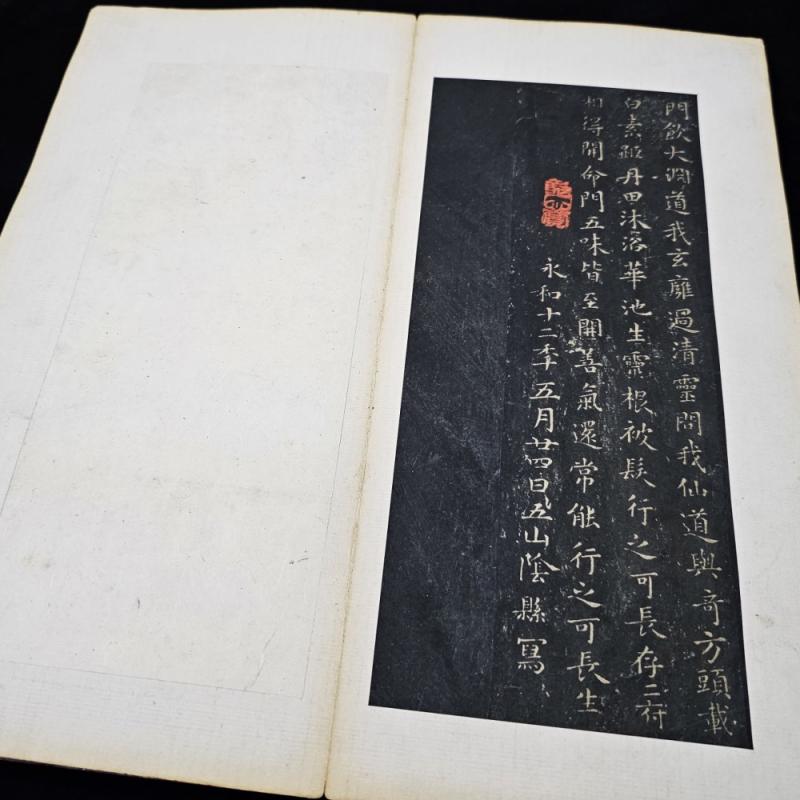 門飲大淵道我玄雍過清靈問我仙道與奇方頭載
白素距丹田沐浴華池生靈根被髮行之可長存二府
相得開命門五味皆至開善氣還常能行之可長生
永和十二年五月廿四日五山陰縣寫